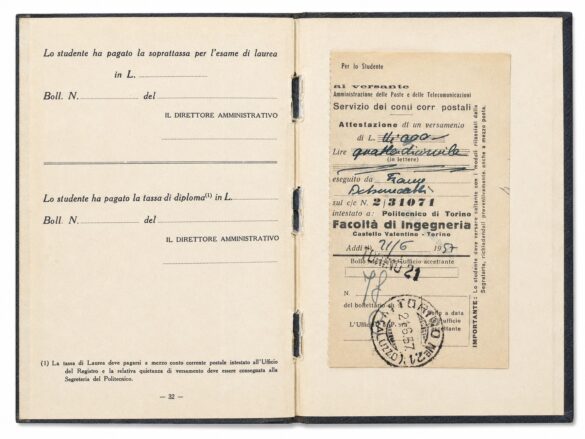 Lo studente ha pagato la soprattassa per l'esame di laurea
in L.
Boll. N. del
IL DIRETTORE AMMINISTRATIVO
Lo studente ha pagato la tassa di diploma(1) in L.
Boll. N. del
IL DIRETTORE AMMINISTRATIVO
(1) La tassa di Laurea deve pagarsi a mezzo conto corrente postale intestato all'Ufficio
del Registro e la relativa quietanza di versamento deve essere consegnata alla
Segreteria del Politecnico.
— 32 —
Per lo Studente
al versante
Amministrazione delle Poste e delle Telecomunicazioni
Servizio dei conti corr postali
Attestazione di un versamento
di L.
Lire quattordicimila
(in lettere)
eseguito da Franco
sul c/c N. 2/31071
intestato a: Politecnico di Torino
Facoltà di ingegneria
Castello Valentino - Torino
Addì 21/6 1957
Bollo ufficio accettante
TORINO 21
N.
del bollettario
Bollo a data
ufficio
accettante
L'Uff
TORINO N° 21
21.6.57
IMPORTANTE: Lo studente deve versare soltanto con i moduli rilasciati dalla
Segreteria, richiedendoli preventivamente anche a mezzo posta.